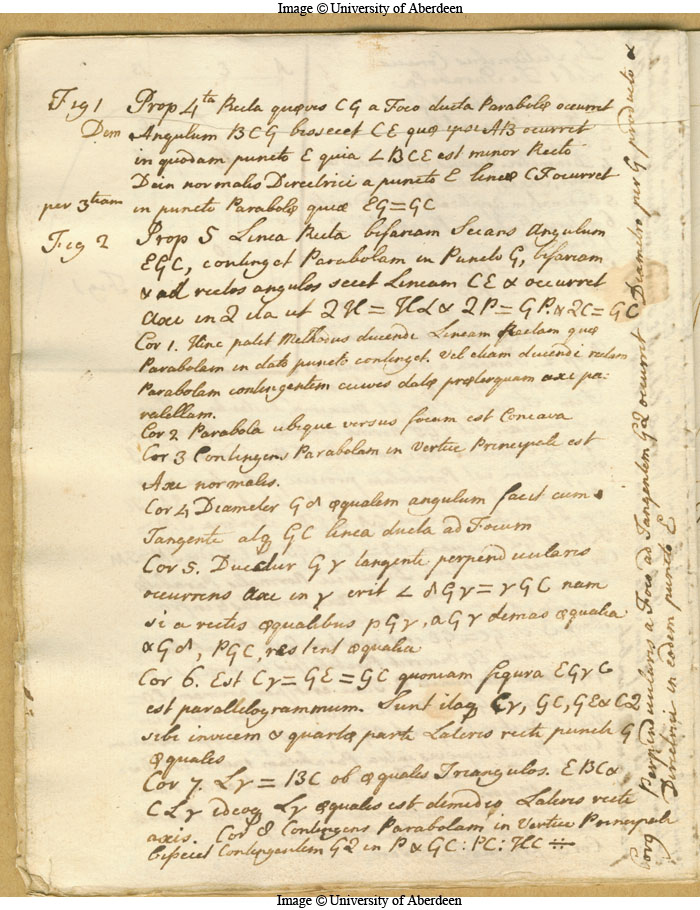 Image © University of Aberdeen
Fig 1 Prop 4ta Recta quævis CG a Foco ducta Parabolæ ocurret
Dem Angulum BCG bissecet CE quæ ipsi AB ocurret
in quodam puncto E quia ∠ BCE est minor Recto
Dein normalis Directrici a puncto E lineæ CF ocurret
per 3tiam in puncto Parabolæ quia EG=GC
Fig 2 Prop 5 Linea Recta bifariam Secans Angulum
EGC, continget Parabolam in Puncto G, bifariam
& ad rectos angulos secet Lineam CE & occurret
axi in 2 ita ut 2H = HL & 2P = GP. & 2C = GC
Cor 1. Hinc patet Methodus ducendi Lineam Rectam quæ
Parabolam in dato puncto continget. Vel etiam ducendi rectam
Parabolam contingentem cuivis datæ præterquam axi pa:
ralellam.
Cor 2 Parabola ubique versus focum est Concava
Cor 3 Contingens Parabolam in Vertice Principali est
Axi normalis.
Cor 4 Diameter Gδ æqualem angulum facit cum
Tangente atq GC linea ducta ad Focum
Cor 5. Ducatur Gγ tangenti perpendicularis
occurrens axi in γ erit ∠ δGγ = γGC nam
si a rectis æqualibus pGγ, aGγ demas æqualia
aGδ, PGC, restent æqualia
Cor 6. Est Cγ = GE = GC quoniam figura EGγC
est parallelogrammum. Sunt itaq Cγ, GC, GE & C2
sibi invicem & quartæ parti Lateris recti puncti G
æquales
Cor 7. Lγ = BC ob æquales Triangulos. EBC &
CLγ ideoq Lγ æqualis est dimidio Lateris recti
axis. Cor 8 Contingens Parabolam in Vertice Principali
bisecet Contingentem G2 in P & GC : PC : HC ÷
Corq Perpendicularis a Foco ad Tangentem G2 ocurret Diametro per G producto &
Directrici in eodem puncto E
Image © University of Aberdeen